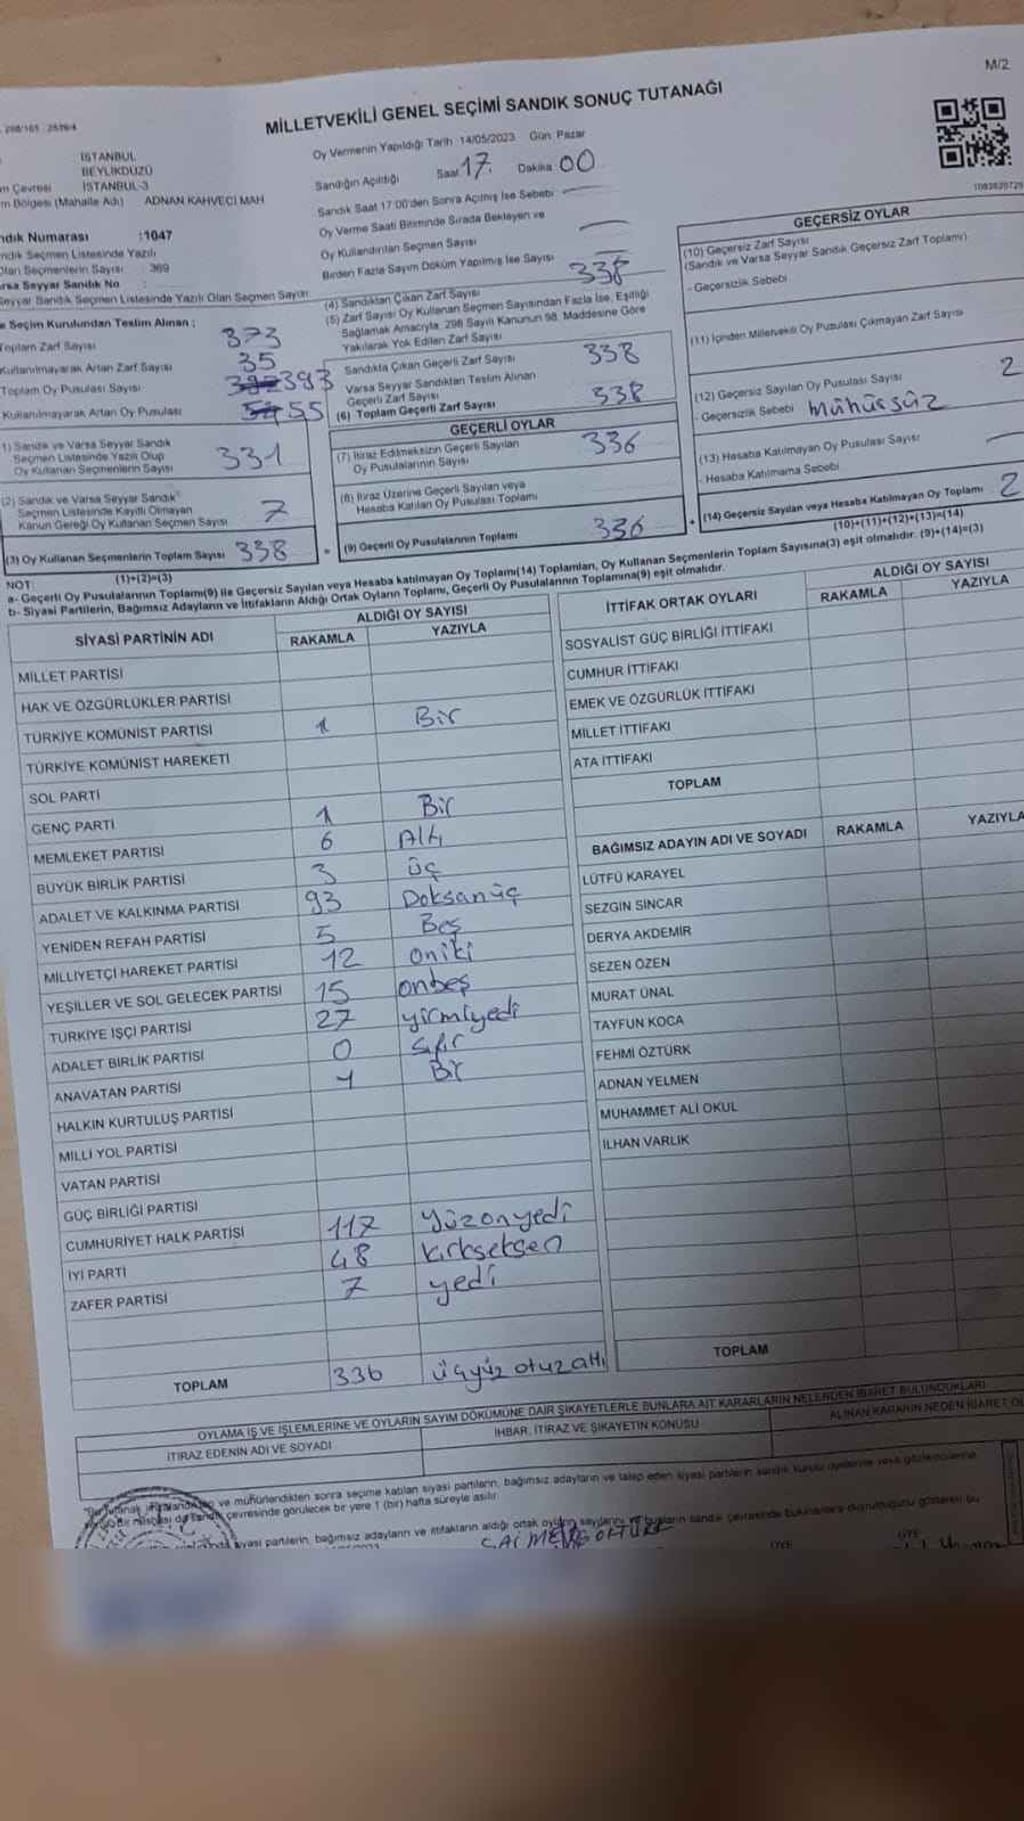 M/2
MİLLETVEKİLİ GENEL SEÇİMİ SANDIK SONUÇ TUTANAĞI
İSTANBUL
BEYLİKDÜZÜ
m Çevresi İSTANBUL-3
m Bölgesi (Mahalle Adı) ADNAN KAHVECİ MAH
ndık Numarası :1047
ndık Seçmen Listesinde Yazılı
Olan Seçmenlerin Sayısı : 369
arsa Seyyar Sandık No :
Seyyar Sandık Seçmen Listesinde Yazılı Olan Seçmen Sayısı
e Seçim Kurulundan Teslim Alınan :
Toplam Zarf Sayısı 373
Kullanılmayarak Artan Zarf Sayısı 35
Toplam Oy Pusulası Sayısı 393
Kullanılmayarak Artan Oy Pusulası 55
1) Sandık ve Varsa Seyyar Sandık
Seçmen Listesinde Yazılı Olup
Oy Kullanan Seçmenlerin Sayısı 331
(2) Sandık ve Varsa Seyyar Sandık
Seçmen Listesinde Kayıtlı Olmayan
Kanun Gereği Oy Kullanan Seçmen Sayısı 7
(3) Oy Kullanan Seçmenlerin Toplam Sayısı 338
(1)+(2)=(3)
Oy Vermenin Yapıldığı Tarih : 14/05/2023 Gün: Pazar
Sandığın Açıldığı Saat 17. Dakika 00
Sandık Saat 17:00'den Sonra Açılmış İse Sebebi
Oy Verme Saati Bitiminde Sırada Bekleyen ve
Oy Kullandırılan Seçmen Sayısı
Birden Fazla Sayım Döküm Yapılmış İse Sayısı
(4) Sandıktan Çıkan Zarf Sayısı 338
(5) Zarf Sayısı Oy Kullanan Seçmen Sayısından Fazla İse, Eşitliği
Sağlamak Amacıyla, 298 Sayılı Kanunun 98. Maddesine Göre
Yakılarak Yok Edilen Zarf Sayısı
Sandıkta Çıkan Geçerli Zarf Sayısı 338
Varsa Seyyar Sandıktan Teslim Alınan
Geçerli Zarf Sayısı
(6) Toplam Geçerli Zarf Sayısı 338
GEÇERLİ OYLAR
(7) İtiraz Edilmeksizin Geçerli Sayılan
Oy Pusulalarının Sayısı 336
(8) İtiraz Üzerine Geçerli Sayılan veya
Hesaba Katılan Oy Pusulası Toplamı
(9) Geçerli Oy Pusulalarının Toplamı 336
GEÇERSİZ OYLAR
(10) Geçersiz Zarf Sayısı
(Sandık ve Varsa Seyyar Sandık Geçersiz Zarf Toplamı)
- Geçersizlik Sebebi
(11) İçinden Milletvekili Oy Pusulası Çıkmayan Zarf Sayısı
(12) Geçersiz Sayılan Oy Pusulası Sayısı 2
- Geçersizlik Sebebi Mühürsüz
(13) Hesaba Katılmayan Oy Pusulası Sayısı
- Hesaba Katılmama Sebebi
(14) Geçersiz Sayılan veya Hesaba Katılmayan Oy Toplamı 2
(10)+(11)+(12)+(13)=(14)
NOT:
a- Geçerli Oy Pusulalarının Toplamı(9) ile Geçersiz Sayılan veya Hesaba katılmayan Oy Toplamı(14) Toplamları, Oy Kullanan Seçmenlerin Toplam Sayısına(3) eşit olmalıdır. (9)+(14)=(3)
b- Siyasi Partilerin, Bağımsız Adayların ve İttifakların Aldığı Ortak Oyların Toplamı, Geçerli Oy Pusulalarının Toplamına(9) eşit olmalıdır.
SİYASİ PARTİNİN ADI ALDIĞI OY SAYISI
RAKAMLA YAZIYLA
MİLLET PARTİSİ
HAK VE ÖZGÜRLÜKLER PARTİSİ
TÜRKİYE KOMÜNİST PARTİSİ 1 Bir
TÜRKİYE KOMÜNİST HAREKETİ
SOL PARTİ
GENÇ PARTİ 1 Bir
MEMLEKET PARTİSİ 6 Altı
BÜYÜK BİRLİK PARTİSİ 3 üç
ADALET VE KALKINMA PARTİSİ 93 Doksanüç
YENİDEN REFAH PARTİSİ 5 Beş
MİLLİYETÇİ HAREKET PARTİSİ 12 oniki
YEŞİLLER VE SOL GELECEK PARTİSİ 15 onbeş
TÜRKİYE İŞÇİ PARTİSİ 27 yirmiyedi
ADALET BİRLİK PARTİSİ 0 sıfır
ANAVATAN PARTİSİ 1 Bir
HALKIN KURTULUŞ PARTİSİ
MİLLİ YOL PARTİSİ
VATAN PARTİSİ
GÜÇ BİRLİĞİ PARTİSİ
CUMHURİYET HALK PARTİSİ 117 Yüzonyedi
İYİ PARTİ 48 kırkseksen
ZAFER PARTİSİ 7 yedi
TOPLAM 336 üçyüz otuz altı
İTTİFAK ORTAK OYLARI ALDIĞI OY SAYISI
RAKAMLA YAZIYLA
SOSYALİST GÜÇ BİRLİĞİ İTTİFAKI
CUMHUR İTTİFAKI
EMEK VE ÖZGÜRLÜK İTTİFAKI
MİLLET İTTİFAKI
ATA İTTİFAKI
TOPLAM
BAĞIMSIZ ADAYIN ADI VE SOYADI RAKAMLA YAZIYLA
LÜTFÜ KARAYEL
SEZGİN SİNCAR
DERYA AKDEMİR
SEZEN ÖZEN
MURAT ÜNAL
TAYFUN KOCA
FEHMİ ÖZTÜRK
ADNAN YELMEN
MUHAMMET ALİ OKUL
İLHAN VARLIK
TOPLAM
OYLAMA İŞ VE İŞLEMLERİNE VE OYLARIN SAYIM DÖKÜMÜNE DAİR ŞİKAYETLERLE BUNLARA AİT KARARLARIN NELERDEN İBARET BULUNDUKLARI
İTİRAZ EDENİN ADI VE SOYADI İHBAR, İTİRAZ VE ŞİKAYETİN KONUSU ALINAN KARARIN NEDEN İBARET
ve mühürlendikten sonra seçime katılan siyasi partilerin, bağımsız adayların ve talep eden siyasi partilerin sandık kurulu
çevresinde görülecek bir yere 1 (bir) hafta süreyle asılır.
siyasi partilerin, bağımsız adayların ve ittifakların aldığı ortak oyların sayılarını